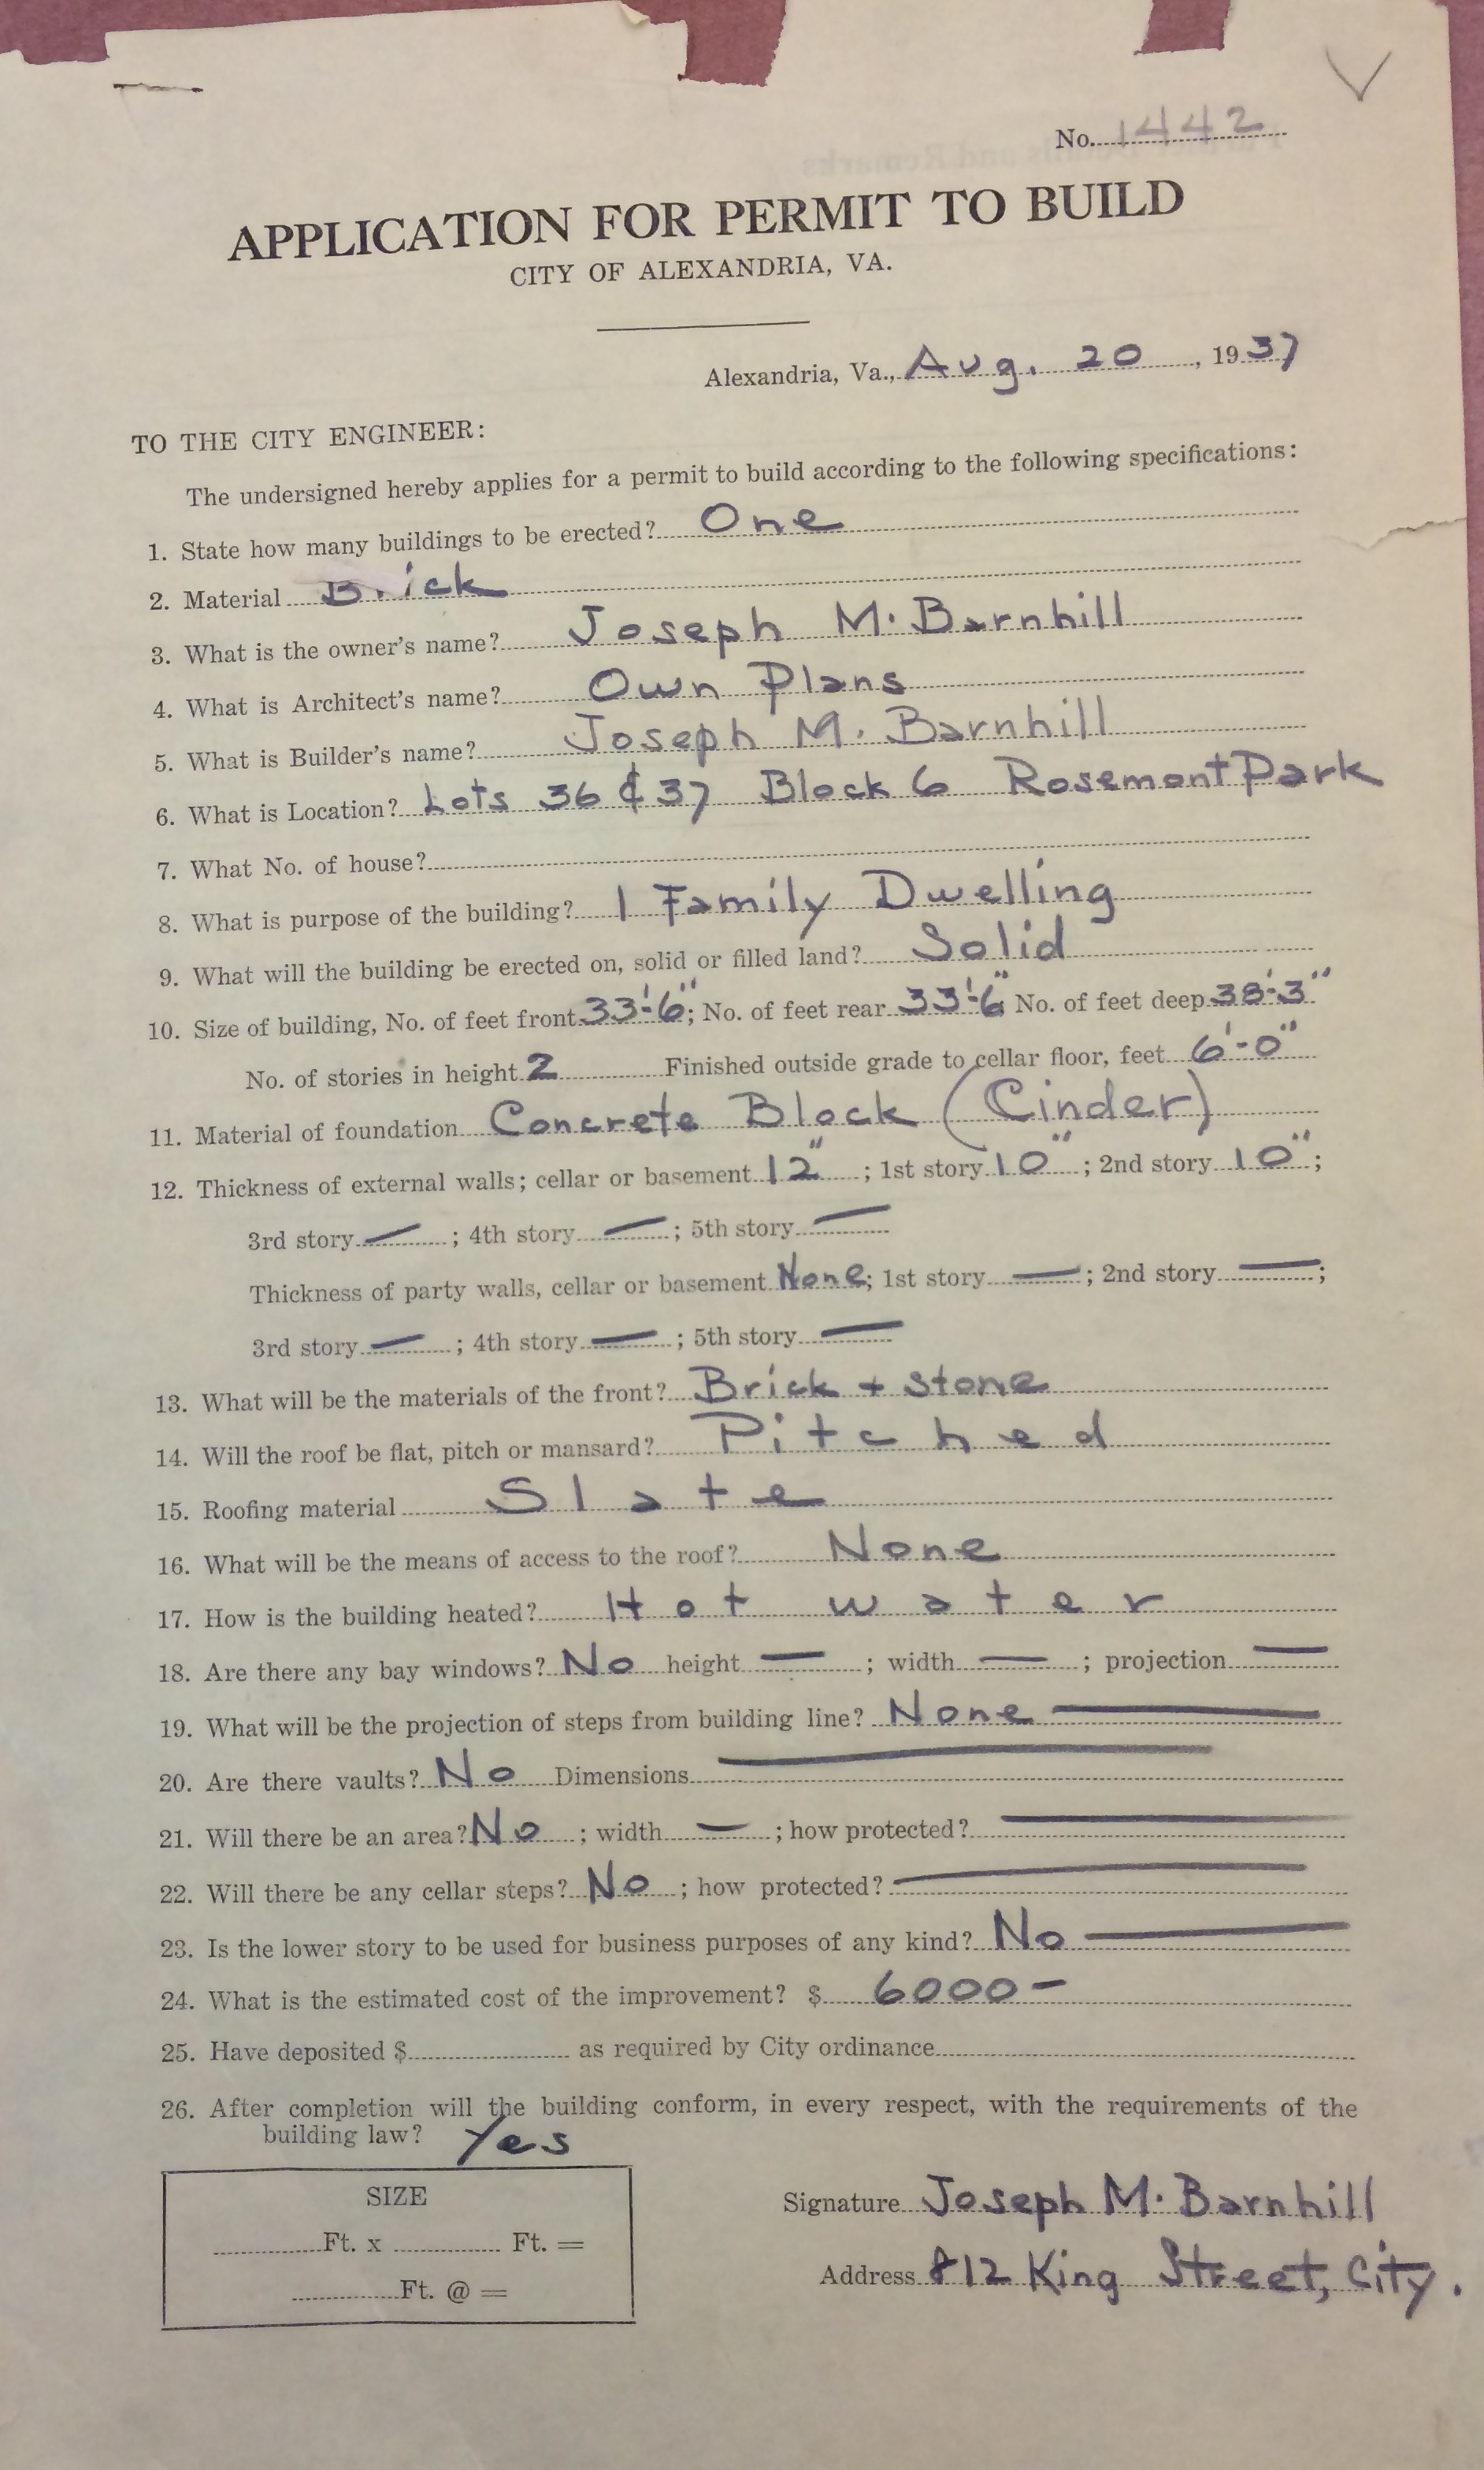 No. 1442
APPLICATION FOR PERMIT TO BUILD
CITY OF ALEXANDRIA, VA.
Alexandria, Va., Aug. 20, 1937
TO THE CITY ENGINEER:
The undersigned hereby applies for a permit to build according to the following specifications:
1. State how many buildings to be erected? One
2. Material Brick
3. What is the owner's name? Joseph M. Barnhill
4. What is Architect's name? Own Plans
5. What is Builder's name? Joseph M. Barnhill
6. What is Location? Lots 36 & 37 Block 6 Rosemont Park
7. What No. of house?
8. What is purpose of the building? 1 Family Dwelling
9. What will the building be erected on, solid or filled land? Solid
10. Size of building, No. of feet front 33'-6"; No. of feet rear 33'-6" No. of feet deep 38'-3"
No. of stories in height 2 Finished outside grade to cellar floor, feet 6'-0"
11. Material of foundation Concrete Block (Cinder)
12. Thickness of external walls; cellar or basement 12"; 1st story 10"; 2nd story 10";
3rd story —; 4th story —; 5th story —
Thickness of party walls, cellar or basement None; 1st story —; 2nd story —;
3rd story —; 4th story —; 5th story —
13. What will be the materials of the front? Brick + stone
14. Will the roof be flat, pitch or mansard? Pitched
15. Roofing material Slate
16. What will be the means of access to the roof? None
17. How is the building heated? Hot water
18. Are there any bay windows? No height —; width —; projection —
19. What will be the projection of steps from building line? None —
20. Are there vaults? No Dimensions —
21. Will there be an area? No; width —; how protected? —
22. Will there be any cellar steps? No; how protected? —
23. Is the lower story to be used for business purposes of any kind? No —
24. What is the estimated cost of the improvement? $ 6000 —
25. Have deposited $ as required by City ordinance
26. After completion will the building conform, in every respect, with the requirements of the
building law? Yes
SIZE
Ft. x Ft. =
Ft. @ =
Signature Joseph M. Barnhill
Address 812 King Street, City.